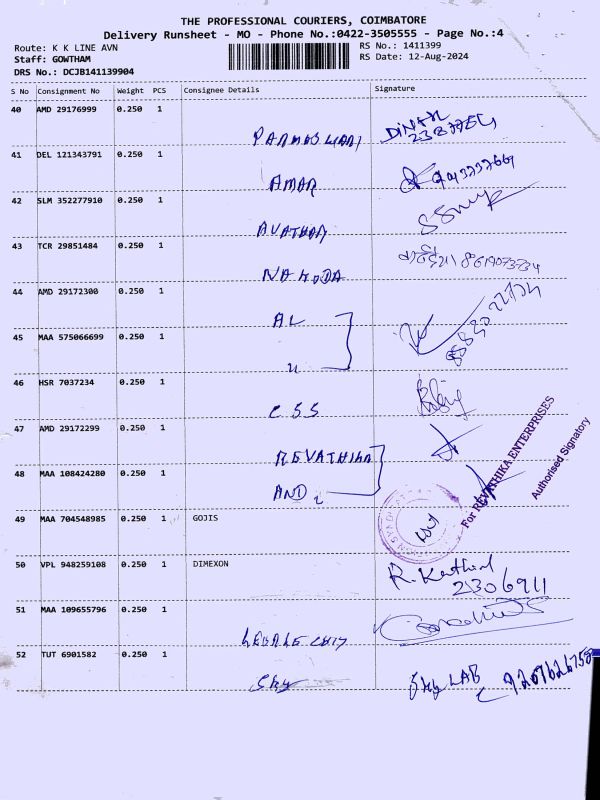 THE PROFESSIONAL COURIERS, COIMBATORE
Delivery Runsheet - MO - Phone No.:0422-3505555 - Page No.:4
Route: K K LINE AVN
RS No.: 1411399
Staff: GOWTHAM
RS Date: 12-Aug-2024
DRS No.: DCJB141139904
S No Consignment No Weight PCS Consignee Details Signature
40 AMD 29176999 0.250 1
41 DEL 121343791 0.250 1
AMAR
42 SLM 352277910 0.250 1
AVATHAR
43 TCR 29851484 0.250 1
NAKODA
44 AMD 29172300 0.250 1
AL
45 MAA 575066699 0.250 1
46 HSR 7037234 0.250 1
CSS
47 AMD 29172299 0.250 1
REVATHIKA
48 MAA 108424280 0.250 1
AND
For REVATHIKA ENTERPRISES
Authorised Signatory
49 MAA 704548985 0.250 1 GOJIS
50 VPL 948259108 0.250 1 DIMEXON
R. Kathir
2306911
51 MAA 109655796 0.250 1
52 TUT 6901582 0.250 1
Sky
Sky LAB